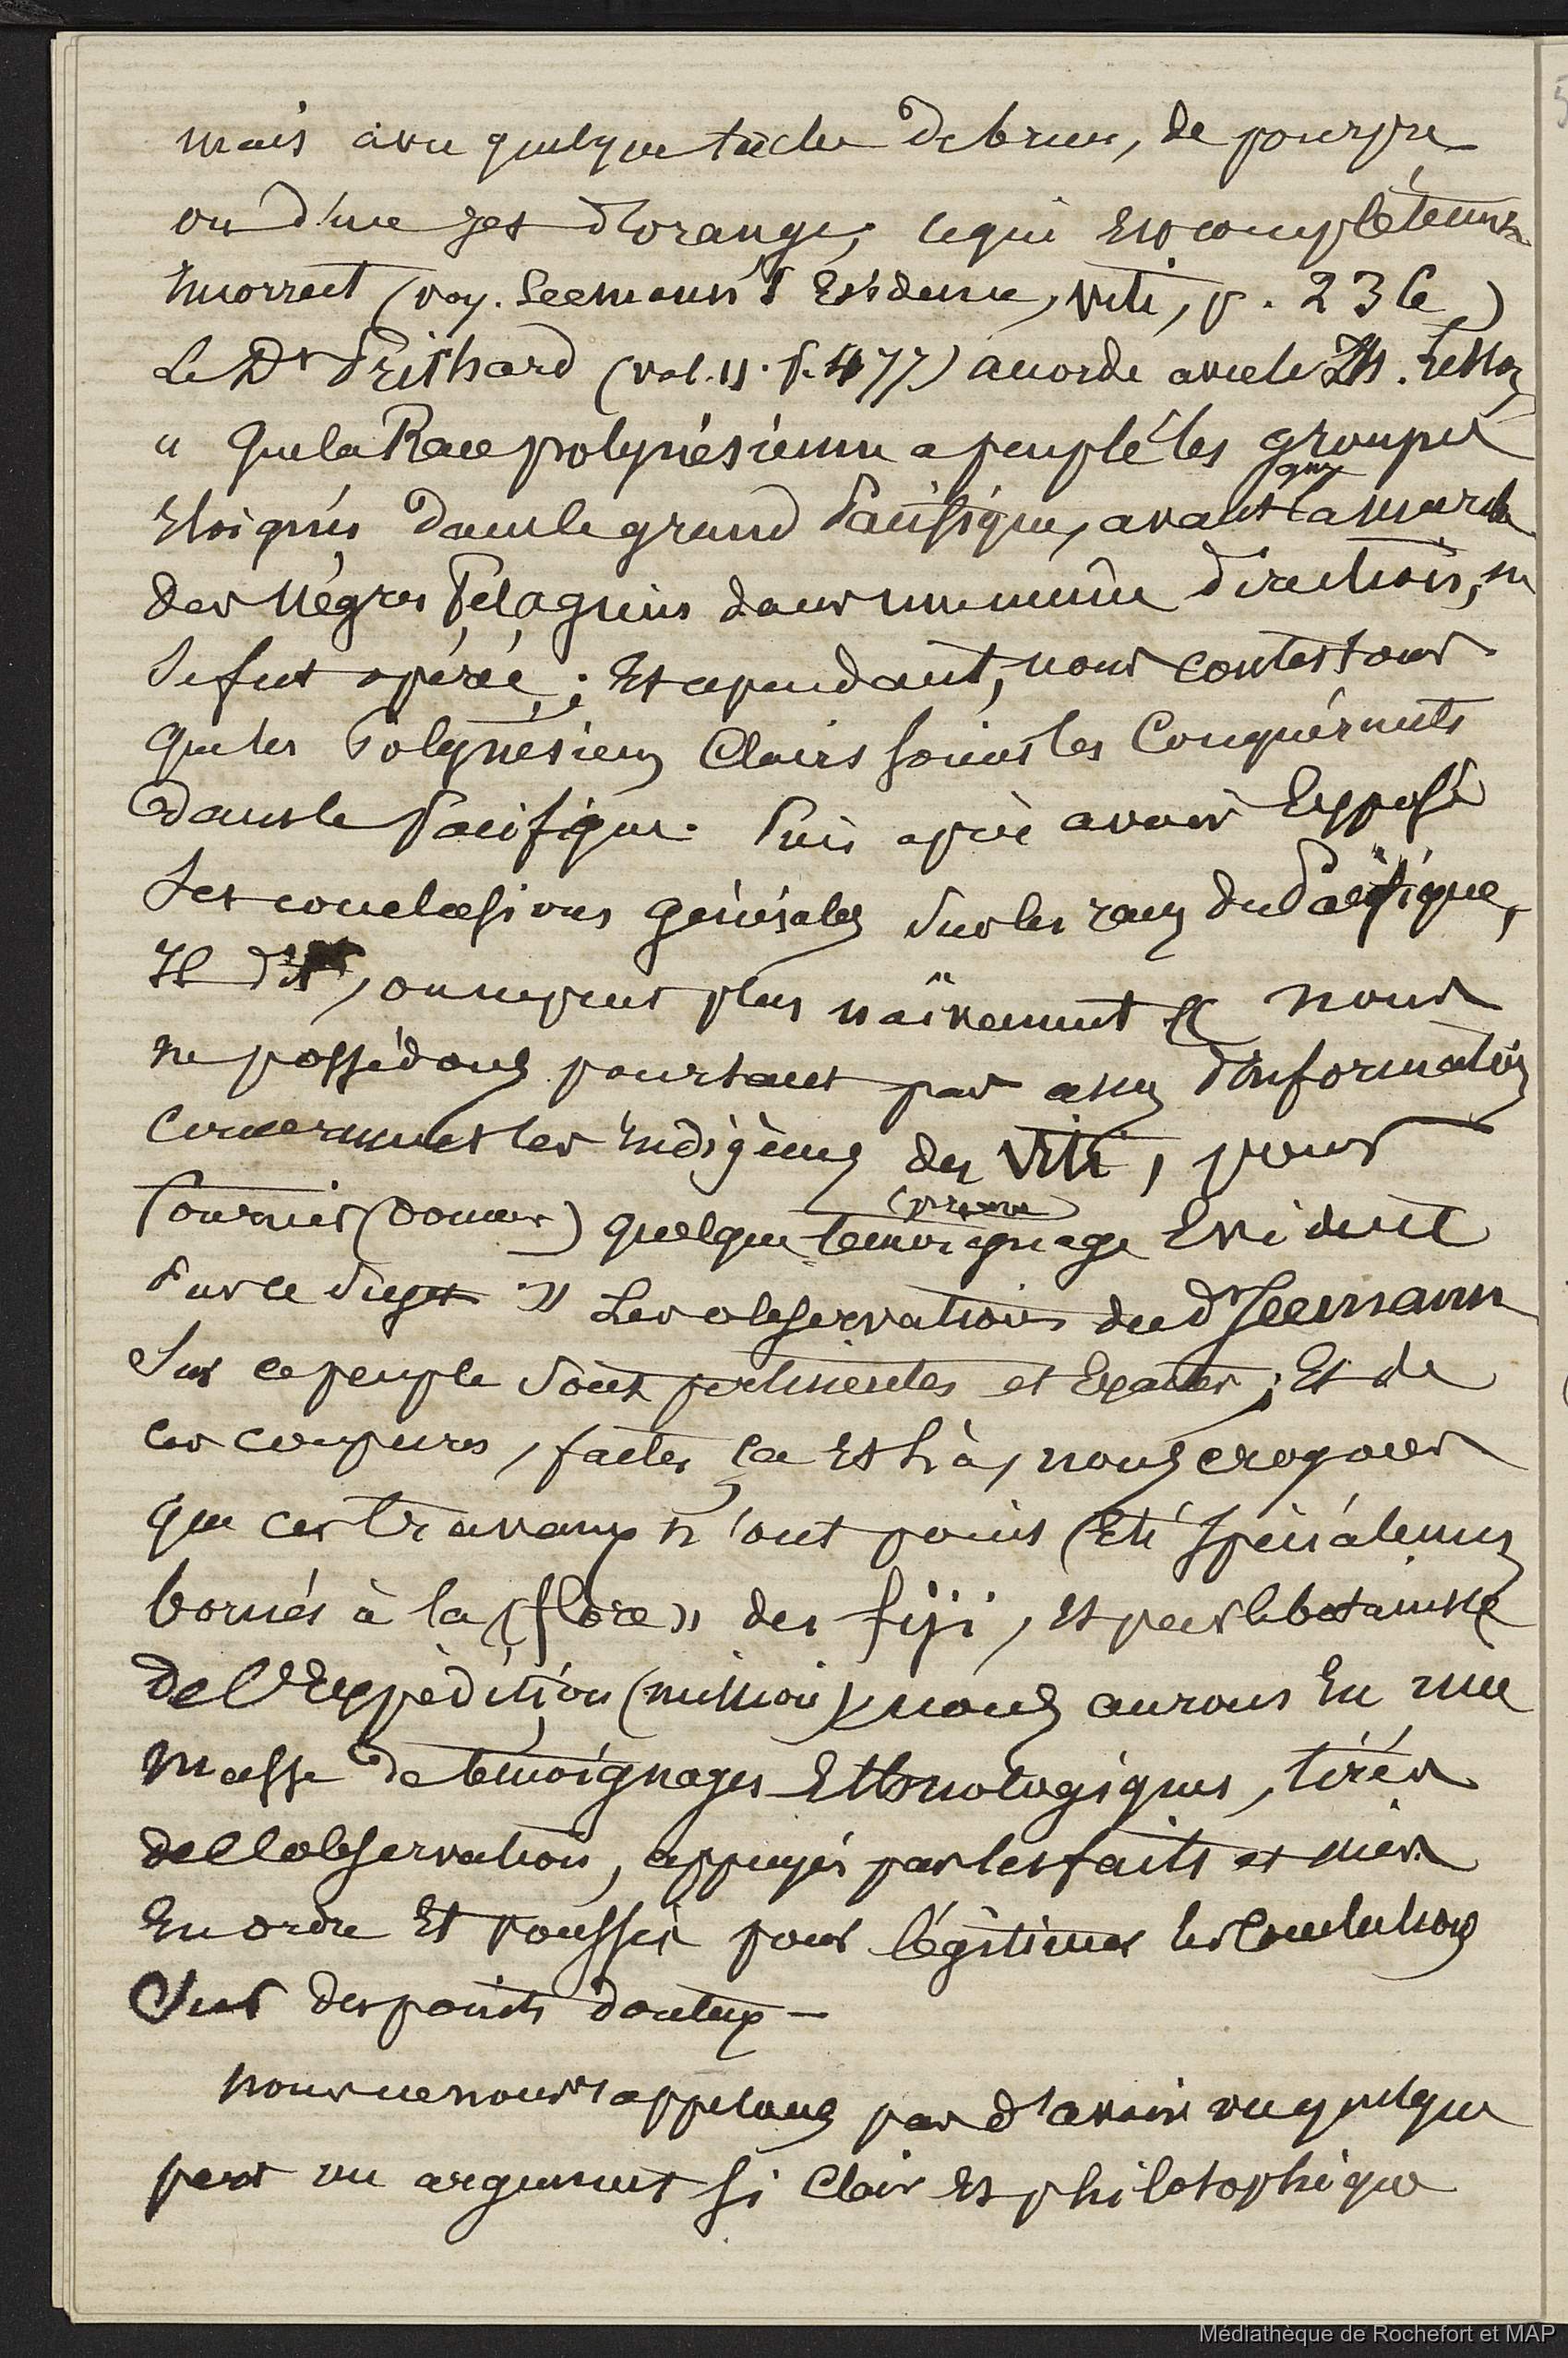 mais avec quelque tâche de brun, de pourpre
ou d'une jet d'orange; ce qui est complètement
incorrect (voy. Seemann's Evidence, Viti, p. 236)
Le Dr Prithard (vol. II. p. 477) accorde avec le Mr. Lesson
" Que la Race polynésienne a peuplé les groupes
Eloignés dans le grand Pacifique, avant que la marche
des Nègres Pélagiens dans une même direction, ne
se fut opérée; Et cependant, nous contestons
que les Polynésiens Clairs soient les Conquérants
dans le Pacifique. Puis après avoir Exposé
Ses conclusions générales sur les races du Pacifique,
Il dit, on ne peut plus naïvement « nous
ne possédons pourtant pas assez d'Informations
Concernant les Indigènes des Viti, pour
fournir (donner) quelque témoignage (preuve) Evident
sur ce sujet ». Les observations du Dr Seemann
Sur ce peuple sont pertinentes et Exactes; Et de
ces coupures, faites ça Et là, nous croyons
que ces travaux n'ont point Eté spécialement
bornés à la «flore» des fiji, Et par le botaniste
de l'Expédition (mission) nous aurons Eu une
masse de témoignages Ethnologiques, tirés
de l'observation, appuyés par les faits et mis
En ordre Et poussés pour légitimer les Conclusions
Sur des points douteux —
nous ne nous rappelons pas d'avoir vu quelque
part un argument si Clair Et philosophique
Médiathèque de Rochefort et MAP